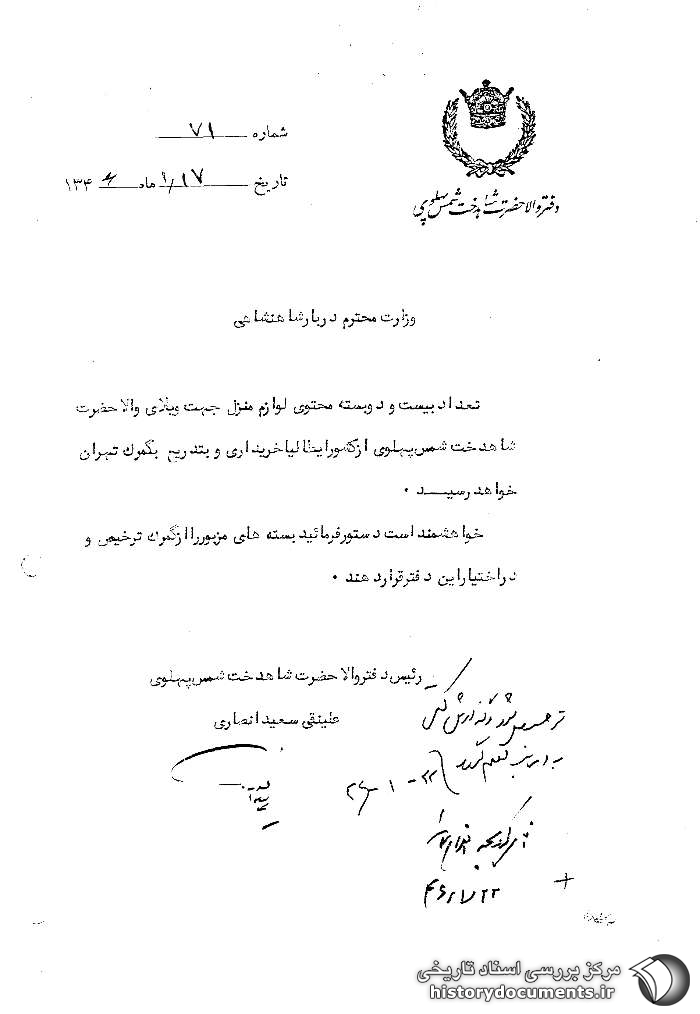 دفتر والاحضرت شاهدخت شمس پهلوی
شماره ۷۱
تاریخ ۱۷/۱ ماه ۱۳۴۶
وزارت محترم دربار شاهنشاهی
تعداد بیست و دو بسته محتوی لوازم منزل جهت ویلای والاحضرت
شاهدخت شمس پهلوی از کشور ایطالیا خریداری و بتدریج بگمرک تهران
خواهد رسید ۰
خواهشمند است دستور فرمائید بسته های مزبور را از گمرک ترخیص و
در اختیار این دفتر قرار دهند ۰
رئیس دفتر والاحضرت شاهدخت شمس پهلوی
علینقی سعید انصاری
۲۲-۱-۴۶
مرکز بررسی اسناد تاریخی
historydocuments.ir